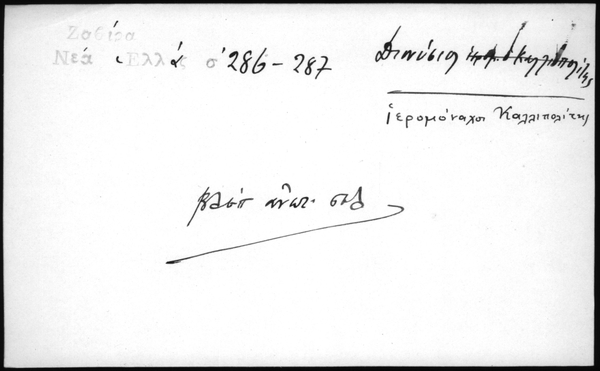 Ζαβίρα
Νέα Ἑλλάς σ 286-287
Διονύσιος ὁ Καλλιπολίτης
ἱερομόναχος Καλλιπολίτης
βλέπ ἀνωτ. σελ